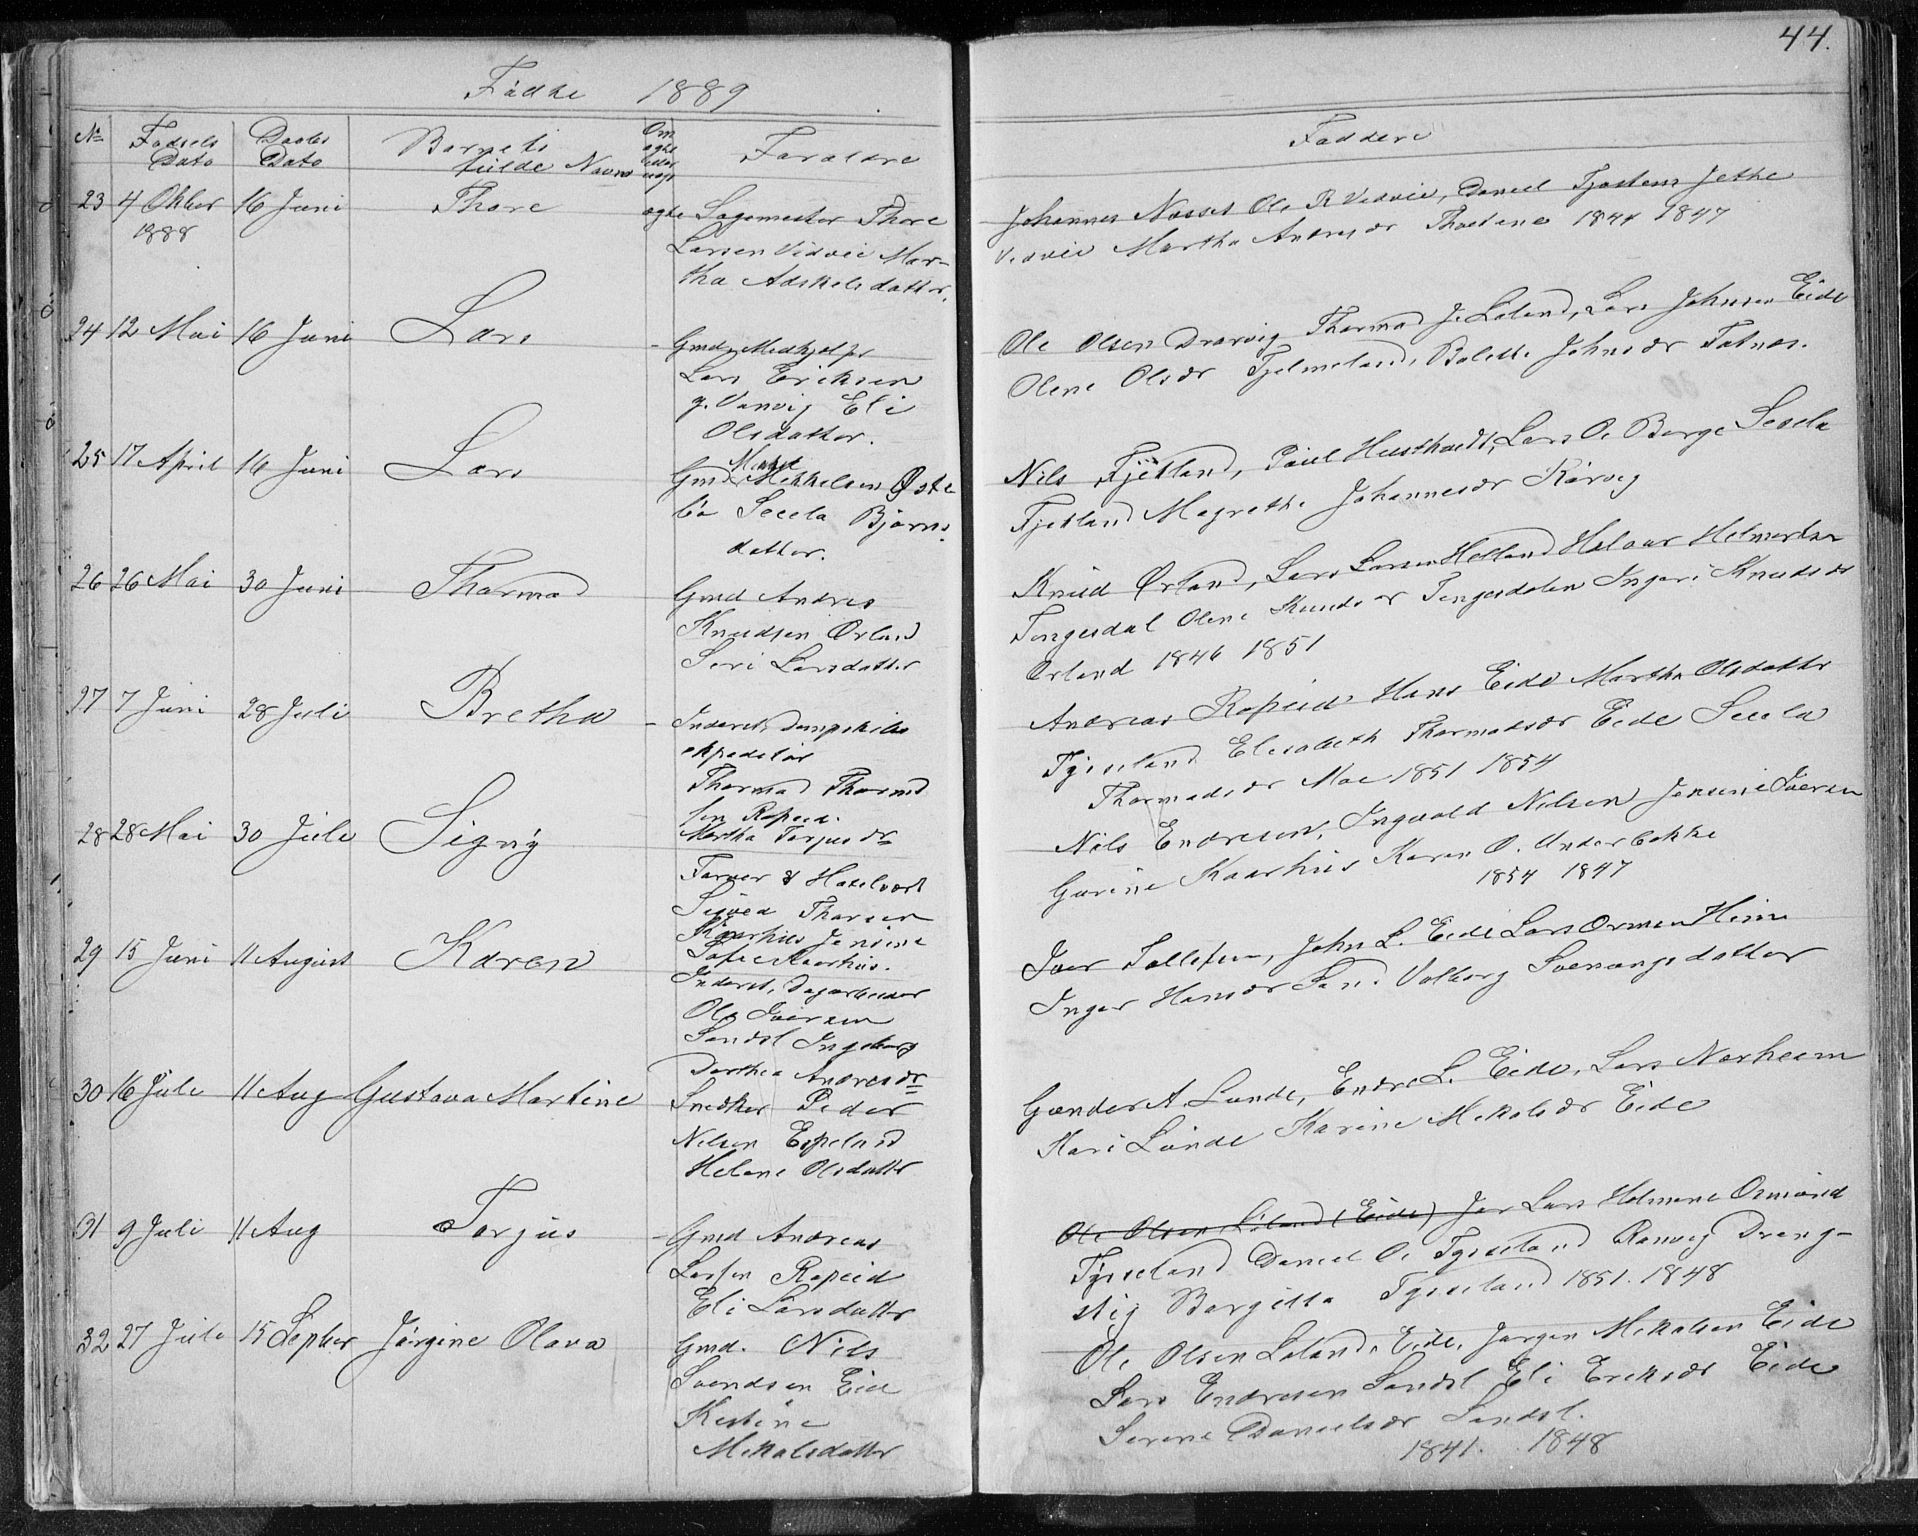 44.
Fødde 1889
No Fødsels Dato Daabs Dato Barnets fulde Navn Om ægte eller uægt Foraldre
Faddere
23 4 Oktber 1888 16 Juni Thore ægte Sagmester Thore
Larsen Vidvei Mar-
tha Adskelsdatter.
Johannes Næsset Ole R Vidvei, Daniel Tjostem Jethe
Vidvei Martha Andresdr Thostene 1844 1847
24 12 Mai 16 Juni Lars - Gmd, Medhjelper
Lars Eriksen
y. Vanvig Eli
Olsdatter.
Ole Olsen Drarvig Thormod J. Løland, Lars Johnsen Eide
Olene Olsdr Tjelmeland, Bolette Johnsdr Fatnes.
25 17 April 16 Juni Lars Gmd Mikkelsen Øste-
bø Seсela Bjørns-
datter.
Nils Fjetland, Poul Hustvedt, Lars O. Berge Sesela
Fjetland Magrethe Johannesdr Kårvig
26 26 Mai 30 Juni Thormod Gmd Andres
Knudsen Ørland
Seri Larsdatter
Knud Ørland, Lars Larsen Helland Halvar Helmertsen
Tengesdal Olene Knudsdr Tengesdalen Ingeri Knudsdr
Ørland 1846 1851
27 7 Juni 28 Juli Bretha - Inderst, Dampskibs
expeditør
Thormod Thormod
sen Ropeid.
Martha Torjusdr
Andreas Ropeid Hans Eide Martha Olsdatter
Tysseland Elisabeth Thormodsdr Eide Secela
Thormodsdr Moe 1851 1854
28 28 Mai 30 Juli Signÿ Farver & Hotelvært
Sjoved Thorsen
Kaarhus Jensine
Sofie Kaarhus.
Nils Endresen, Ingvald Nilsen Jensine Iversen
Gurine Kaarhus Karen O. Underbakke
1854 1847
29 15 Juni 11 August Karen Inderst, Dagarbeider
Ole Iversen
Sandsl Ingeborg
Dorthea Andresdr
Iver Tollefsen, John L. Eide Lars Ormsen Heim
Inger Hansdr San. Valborg Svenungsdatter
30 16 Jule 11 Aug Gustava Martine Snedker Peder
Nilsen Espeland
Helene Olsdatter
Gunder A. Lunde, Endre L. Eide, Lars Norheim
Kari Lunde Karine Mikalsdr Eide
31 9 Juli 11 Aug Torjus - Gmd Andreas
Larsen Ropeid
Eli Larsdatter
Ole Olsen Løland (Eide) Jør Lars Helmene Osmund
Tysseland Daniel O. Tysseland Ranveig Dreng-
stig Bergitta Tysseland 1851. 1848
32 27 Jule 15 Septber Jørgine Olava Gmd. Nils
Svendsen Eide
Kistine
Mikalsdatter
Ole Olsen Løland, Eide, Jørgen Mikalsen Eide
Lars Endresen Sandsl Eli Eriksdr Eide
Serene Danielsdr Sandsl.
1841. 1848